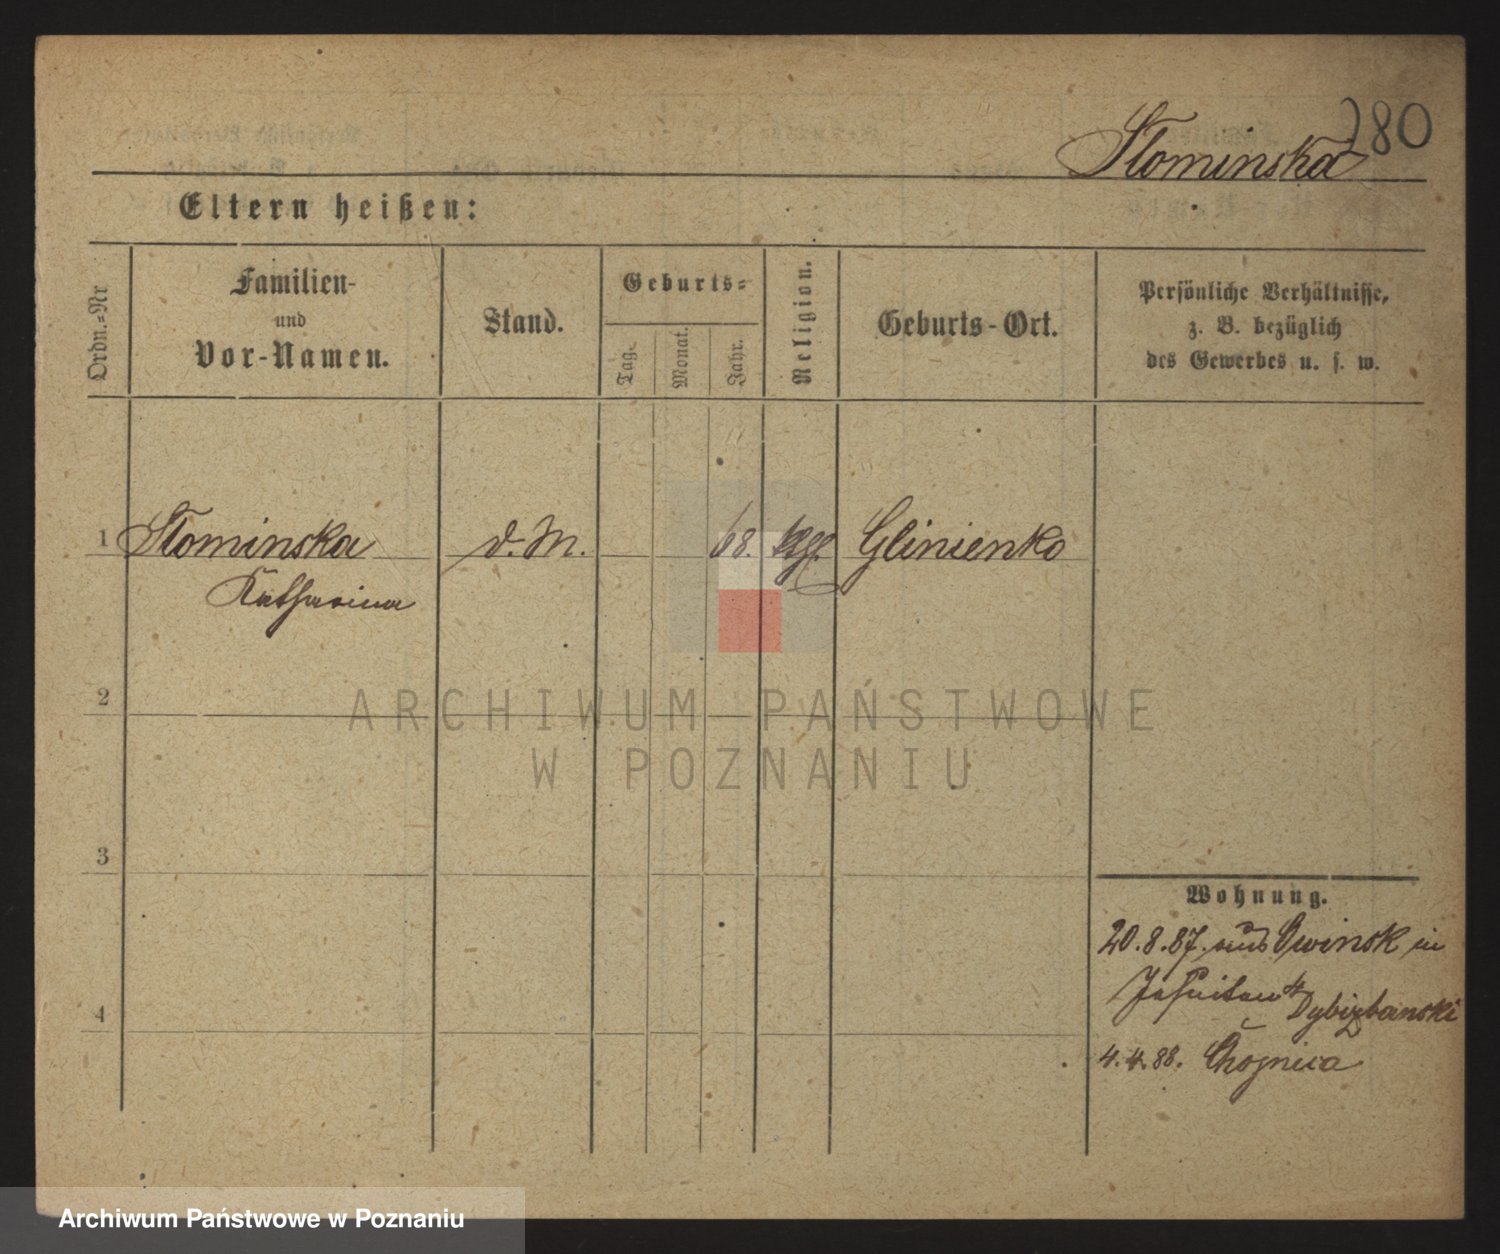 280
Slominska
Eltern heißen:
Ordn.-Nr
Familien-
und
Vor-Namen.
Stand.
Geburts-
Tag.
Monat.
Jahr.
Religion.
Geburts-Ort.
Persönliche Verhältnisse,
z. B. bezüglich
des Gewerbes u. s. w.
1 Slominska d. M. 68. Glinienko
Katharina
2
3
4
Wohnung.
20.8.87. aus Owinsk in
Jesuiten 4
Dybizbanski
4.4.88. Chojnica
ARCHIWUM PAŃSTWOWE
W POZNANIU
Archiwum Państwowe w Poznaniu